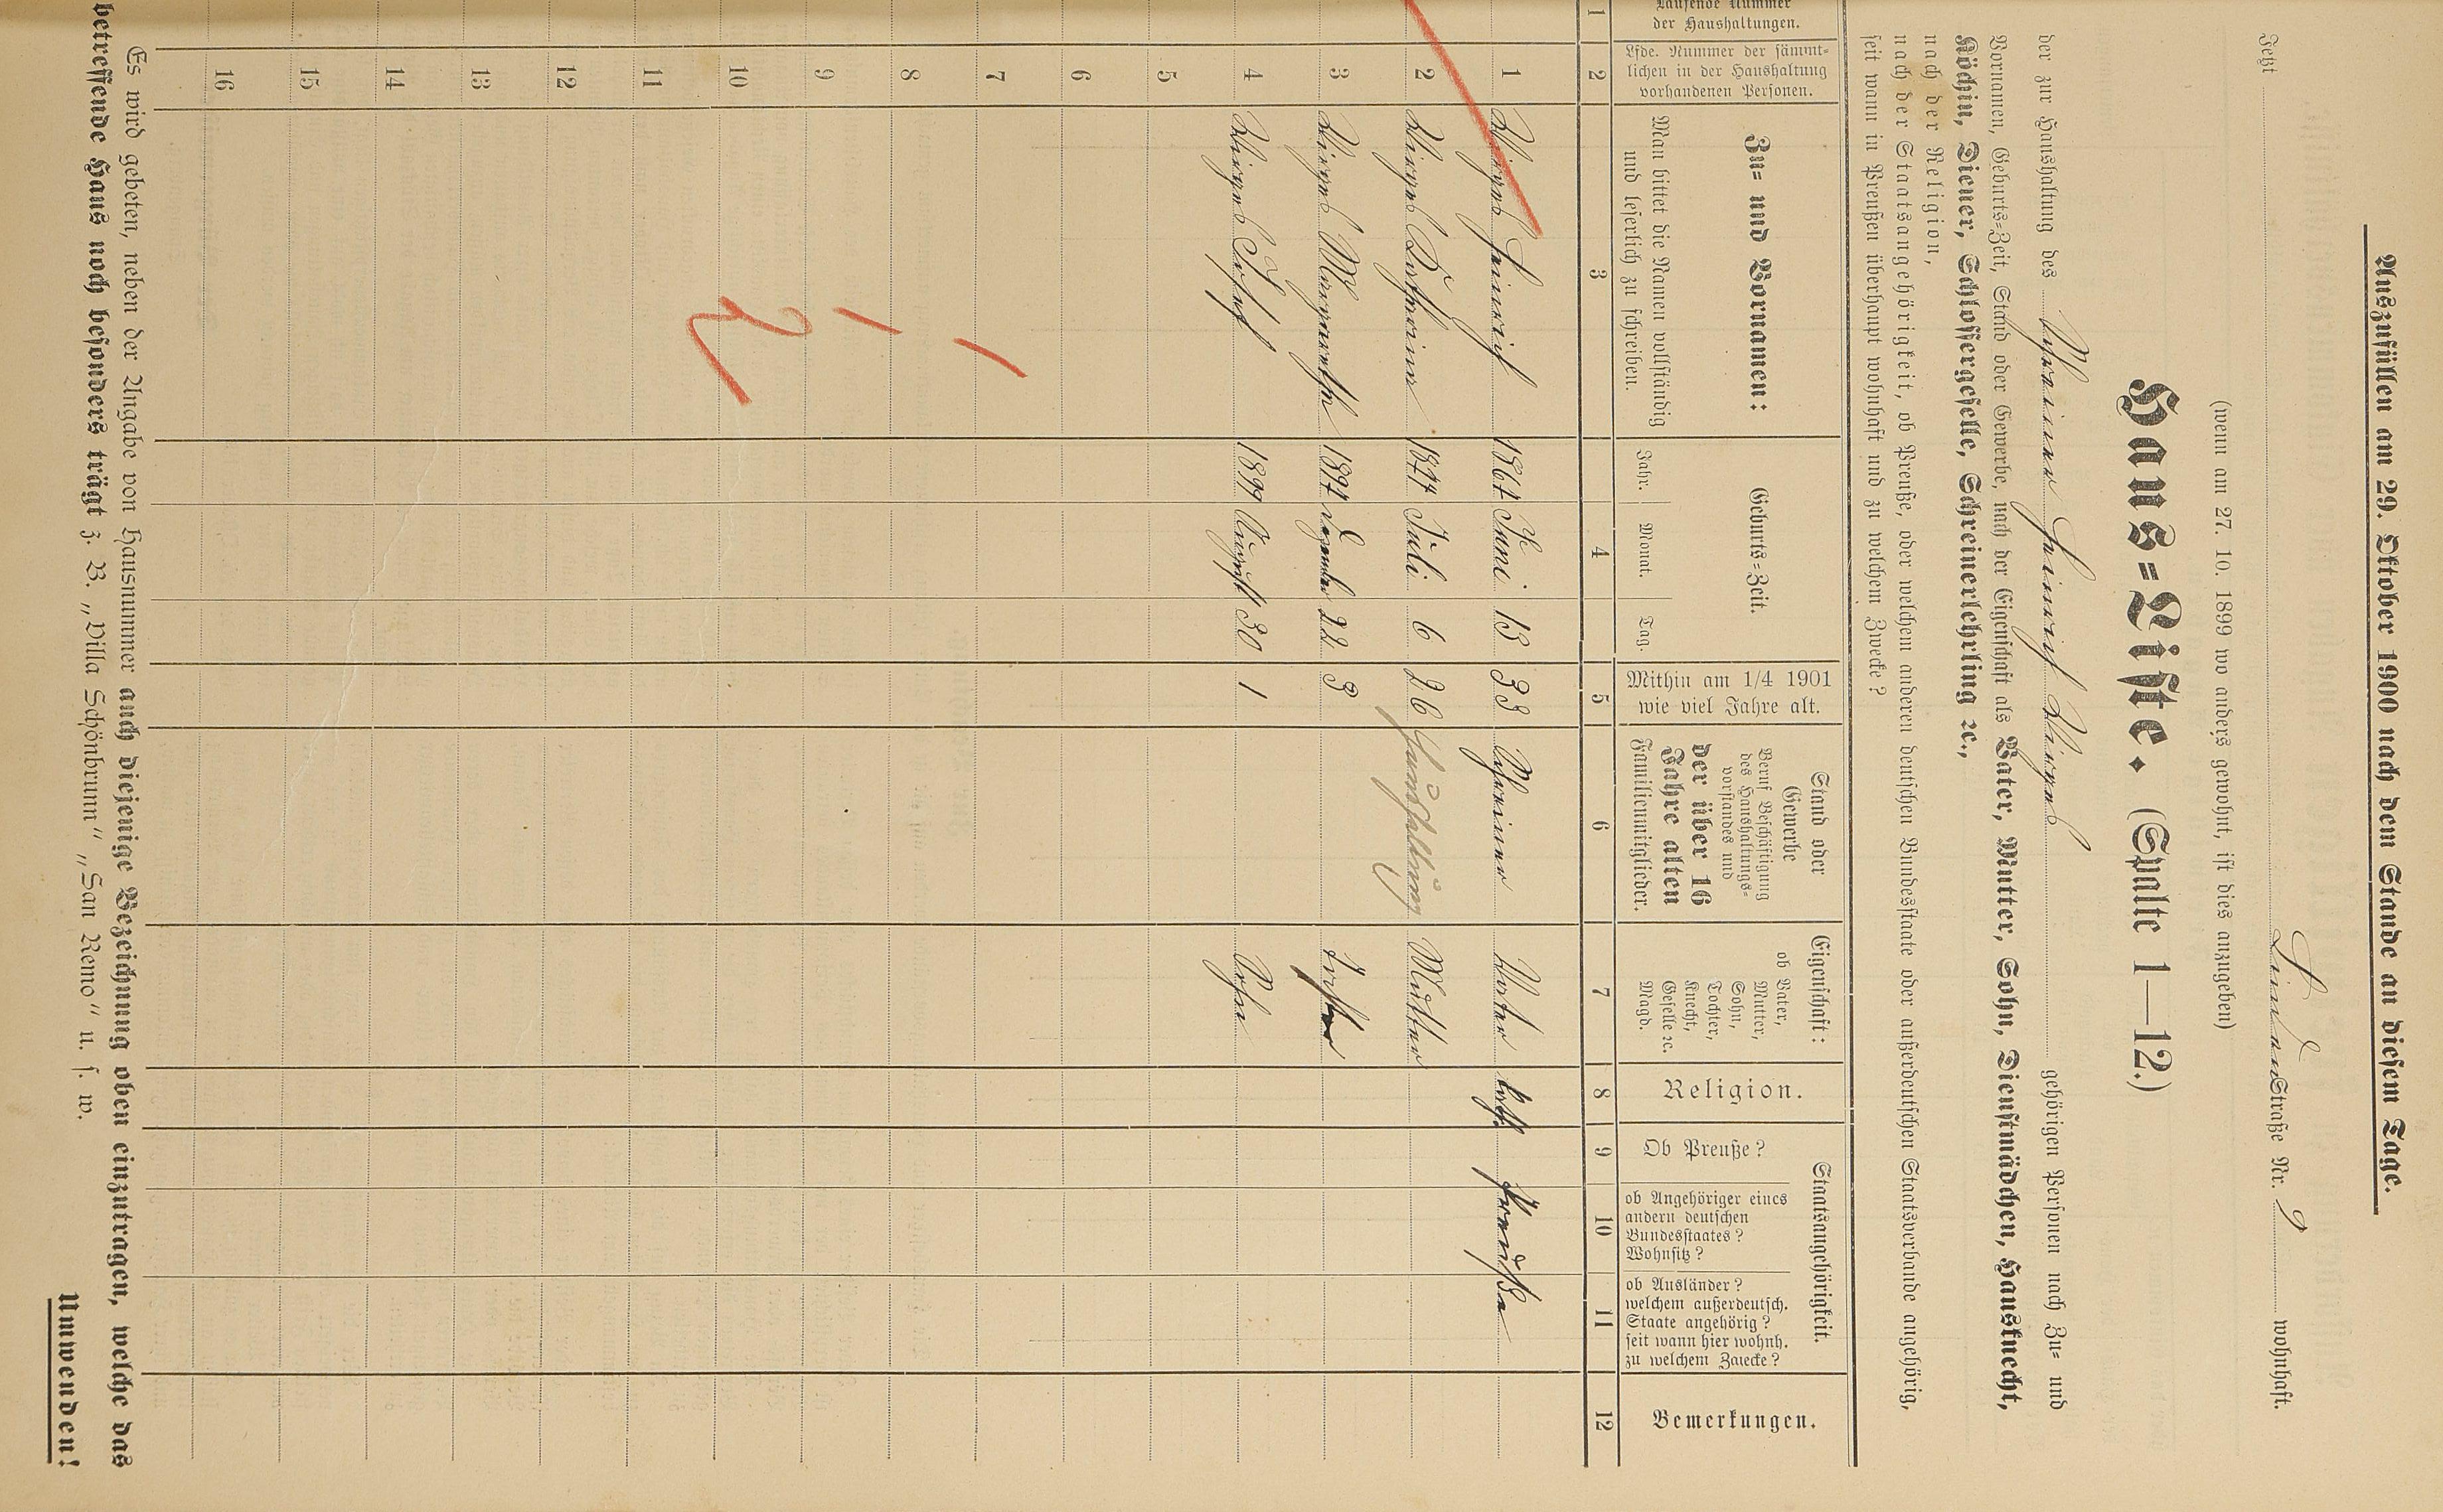 Auszufüllen am 29. Oktober 1900 nach dem Stande an diesem Tage.
Jetzt Linden Straße Nr. 9 wohnhaft.
(wenn am 27. 10. 1899 wo anders gewohnt, ist dies anzugeben)
Haus=Liste. (Spalte 1—12.)
der zur Haushaltung des Schreiner Heinrich gehörigen Personen nach Zu= und
Vornamen, Geburts=Zeit, Stand oder Gewerbe, nach der Eigenschaft als Vater, Mutter, Sohn, Dienstmädchen, Hausknecht,
Köchin, Diener, Schlossergeselle, Schreinerlehrling ꝛc.,
nach der Religion,
nach der Staatsangehörigkeit, ob Preuße, oder welchem anderen deutschen Bundesstaate oder außerdeutschen Staatsverbande angehörig,
seit wann in Preußen überhaupt wohnhaft und zu welchem Zwecke?
Laufende Nummer
der Haushaltungen.
Lfde. Nummer der sämmt-
lichen in der Haushaltung
vorhandenen Personen.
Zu= und Vornamen:
Man bittet die Namen vollständig
und leserlich zu schreiben.
Geburts=Zeit.
Jahr.
Monat.
Tag.
Mithin am 1/4 1901
wie viel Jahre alt.
Stand oder
Gewerbe
Beruf Beschäftigung
des Haushaltungs-
vorstandes und
der über 16
Jahre alten
Familienmitglieder.
Eigenschaft:
ob Vater,
Mutter,
Sohn,
Tochter,
Knecht,
Geselle ꝛc.
Magd.
Religion.
Staatsangehörigkeit.
Ob Preuße?
ob Angehöriger eines
andern deutschen
Bundesstaates?
Wohnsitz?
ob Ausländer?
welchem außerdeutsch.
Staate angehörig?
seit wann hier wohnh.
zu welchem Zwecke?
Bemerkungen.
1 2 3 4 5 6 7 8 9 10 11 12
1 Heinrich 1867 Juni 13 33 Schreiner Vater kath. Preuße
2 Kathrina 1874 Juli 6 26 Haushaltung Mutter
3 Margarethe 1897 Dezember 22 3 Tochter
4 Josef 1899 August 30 1 Sohn
5
6
7
8
9
10
11
12
13
14
15
16
Es wird gebeten, neben der Angabe von Hausnummer auch diejenige Bezeichnung oben einzutragen, welche das
betreffende Haus noch besonders trägt z. B. „Villa Schönbrunn“ „San Remo“ u. s. w.
Umwenden!